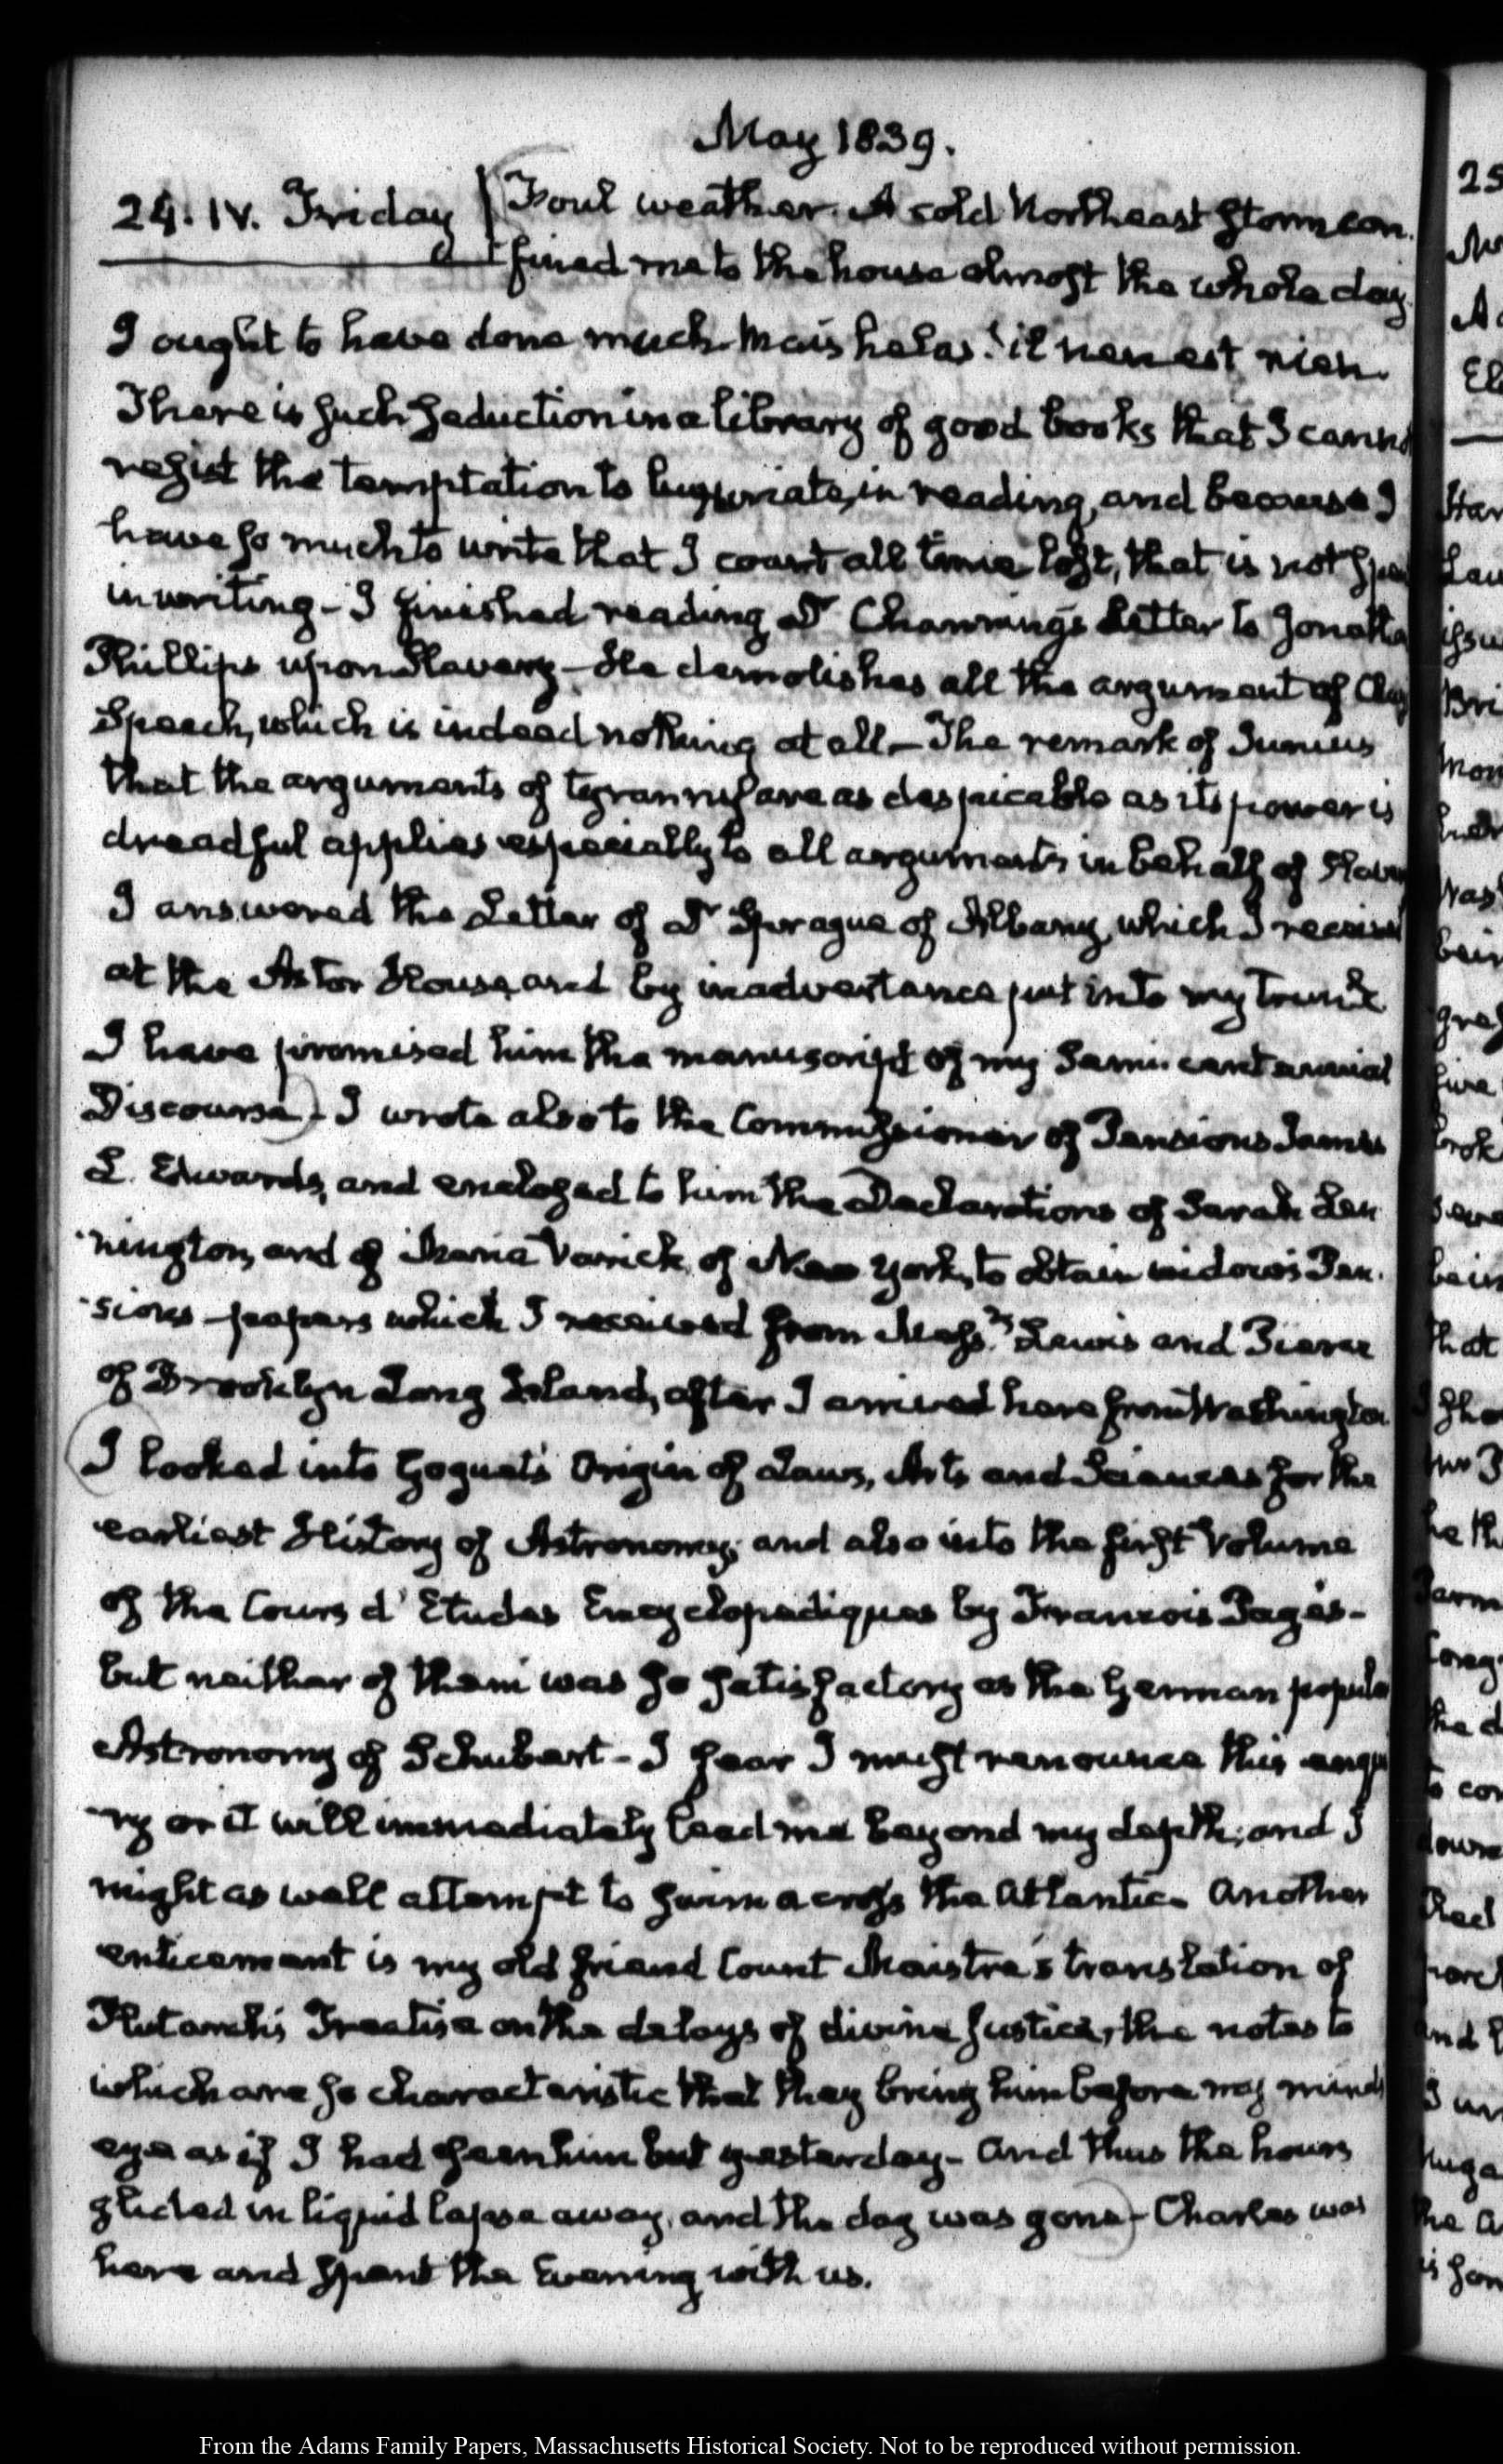 May 1839.
24. IV. Friday Foul weather. A cold Northeast Storm con-
fined me to the house almost the whole day.
I ought to have done much. Mais helas! il n'en est rien.
There is such seduction in a library of good books that I cannot
resist the temptation to luxuriate in reading, and because I
have so much to write that I count all time lost, that is not spen
in writing - I finished reading Dr Channing's Letter to Jonatha
Phillips upon Slavery - He demolishes all the argument of Clay
Speech, which is indeed nothing at all - The remark of Junius
that the arguments of tyranny are as despicable as its power is
dreadful applies especially to all arguments in behalf of Slavery
I answered the Letter of Dr Sprague of Albany, which I received
at the Astor House, and by inadvertance put into my trunk
I have promised him the manuscript of my Semi-centennial
Discourse - I wrote also to the Commissioner of Pensions James
L. Edwards, and enclosed to him the Declarations of Sarah Len
nington, and of Maria Varrick, of New York, to obtain widow's Pen-
sions - papers which I received from Messrs Lewis and Pierce
of Brooklyn Long Island, after I arrived here from Washington
I looked into Goguet's Origin of Laws, Arts and Sciences for the
earliest History of Astronomy; and also into the first Volume
of the Cours d'Etudes Encyclopediques by Francois Pagès -
but neither of them was so satisfactory as the German popula
Astronomy of Schubert - I fear I must renounce this enqui
ry or it will immediately lead me beyond my depth; and I
might as well attempt to swim across the Atlantic. Another
enticement is my old friend Count Maistre's translation of
Plutarch's Treatise on the delays of divine Justice, the notes to
which are so characteristic that they bring him before my minds
eye as if I had seen him but yesterday - And thus the hours
glided in liquid lapse away, and the day was gone - Charles was
here and spent the Evening with us.
From the Adams Family Papers, Massachusetts Historical Society. Not to be reproduced without permission.